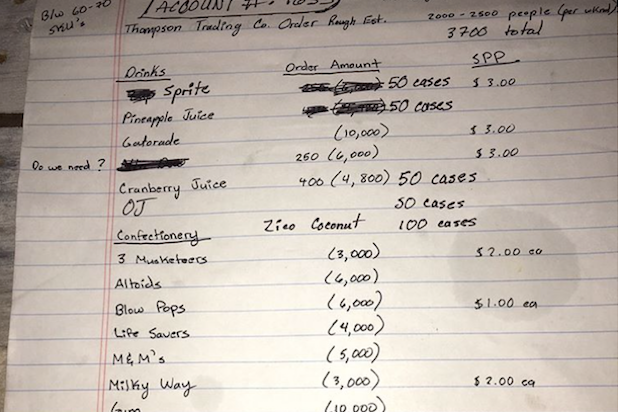 B/w 60-70
SKU's
ACCOUNT #:
2000-2500 people (per wknd)
Thompson Trading Co. Order Rough Est.
3700 total
Drinks Order Amount SPP
Sprite 50 cases $3.00
Pineapple Juice 50 cases
Gatorade (10,000) $3.00
Do we need? 250 (6,000) $3.00
Cranberry Juice 400 (4,800) 50 cases
OJ 50 cases
Confectionery Zico Coconut 100 cases
3 Musketeers (3,000) $2.00 ea
Altoids (6,000)
Blow Pops (6,000) $1.00 ea
Life Savers (4,000)
M&M's (5,000)
Milky Way (3,000) $2.00 ea
(10,000)